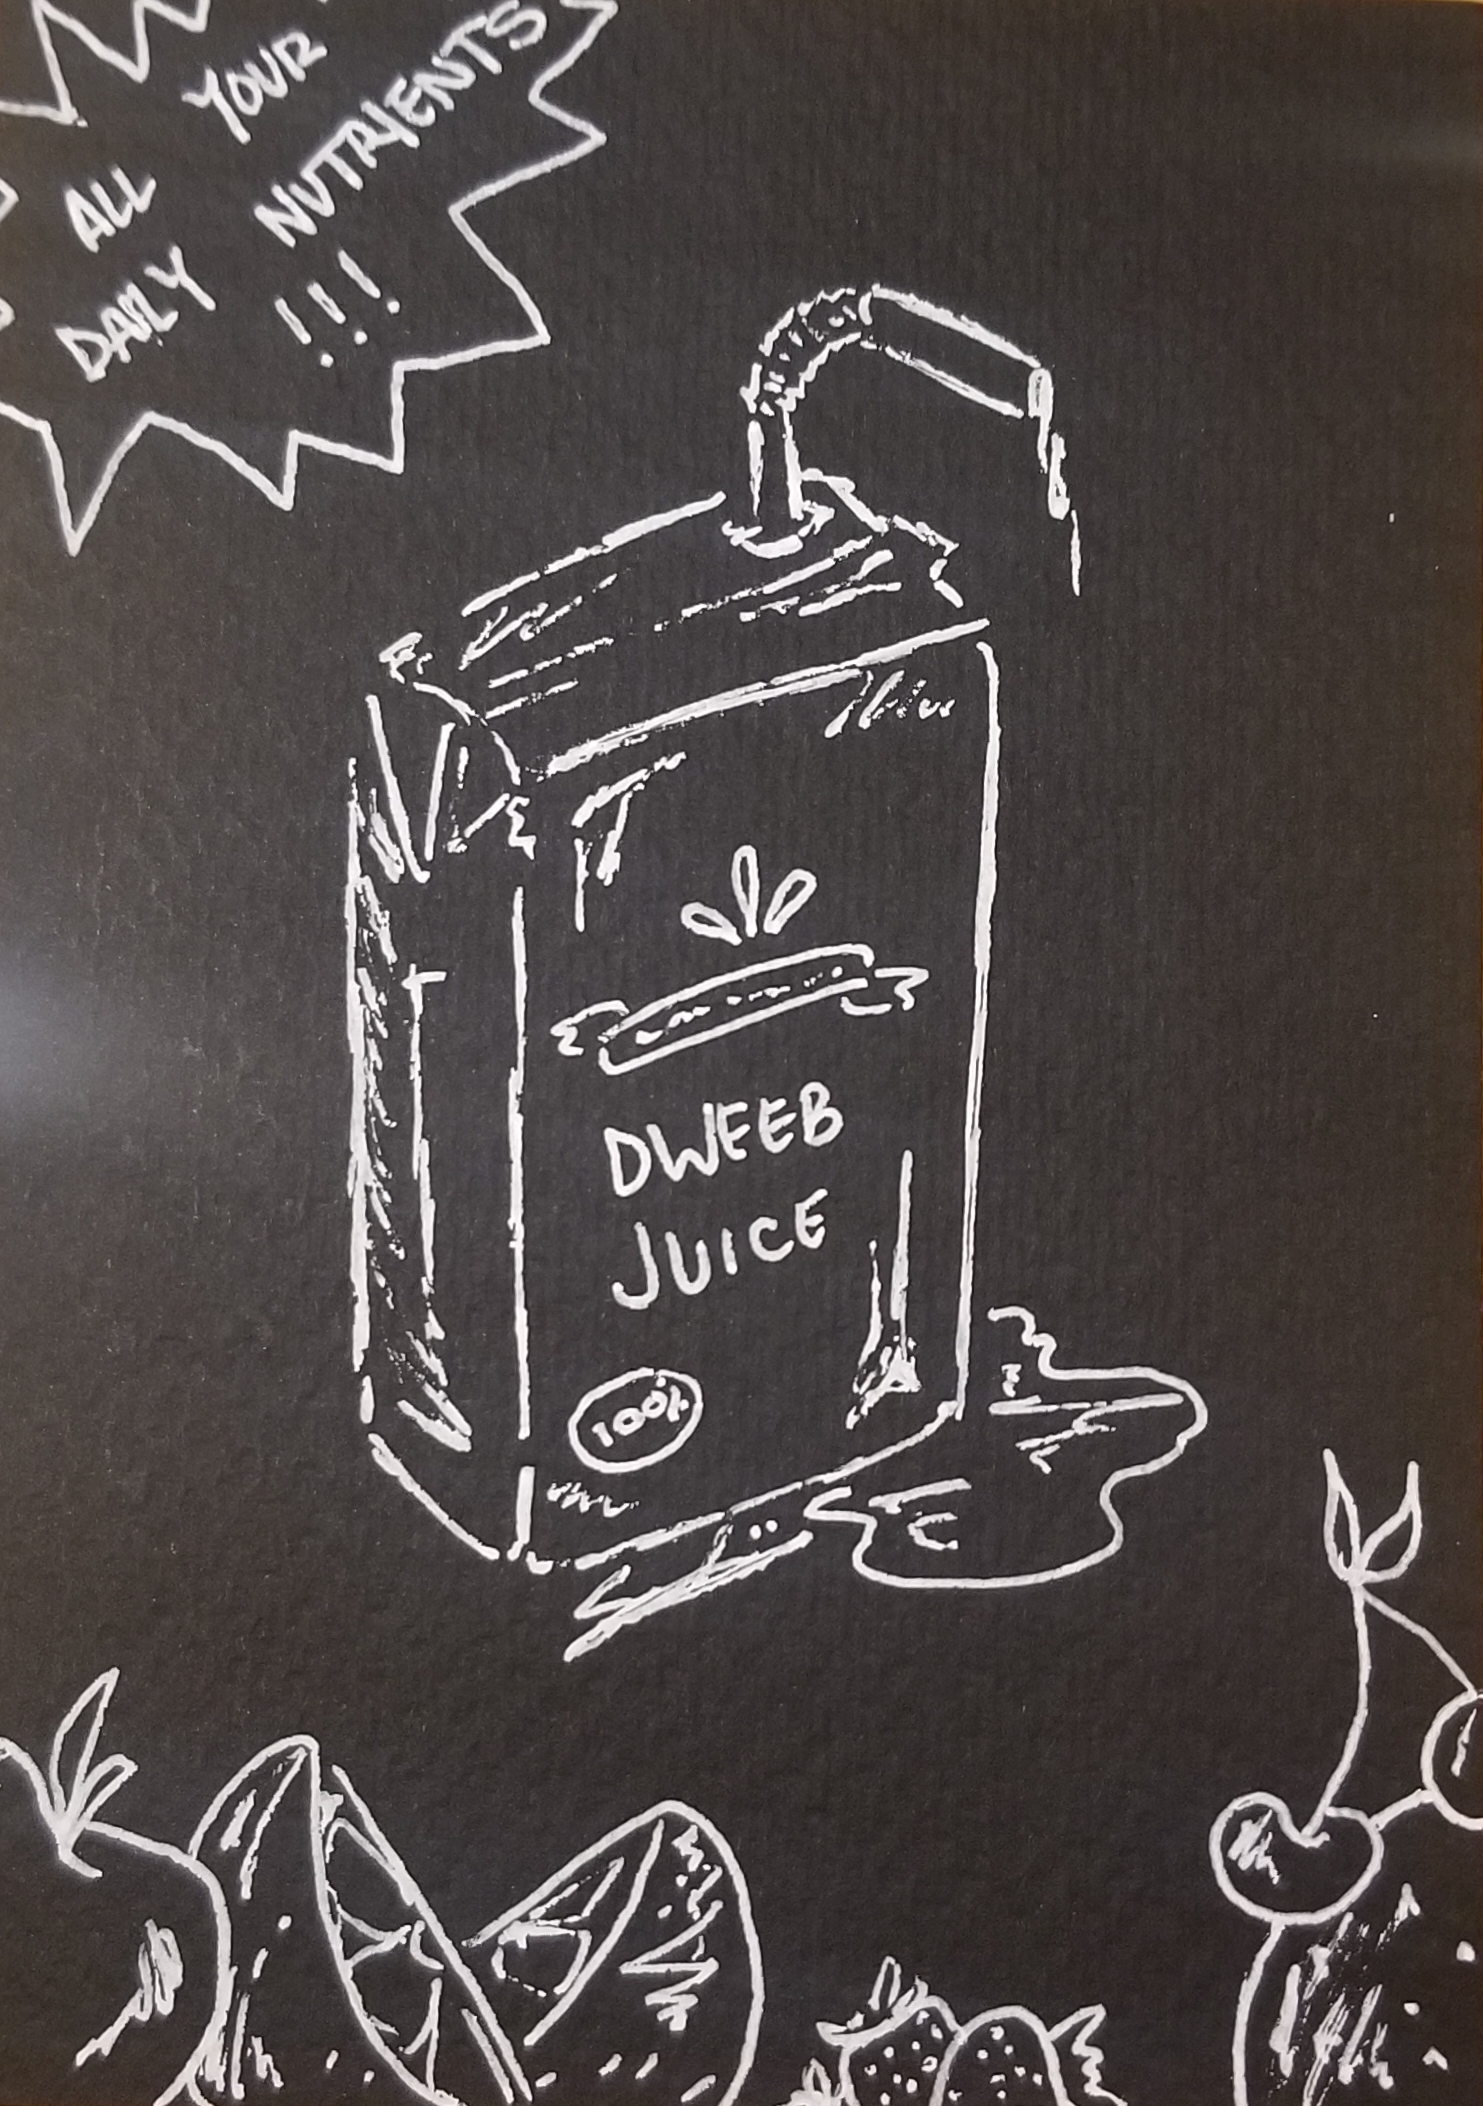 ALL YOUR
DAILY NUTRIENTS
!!!
DWEEB
JUICE
100%